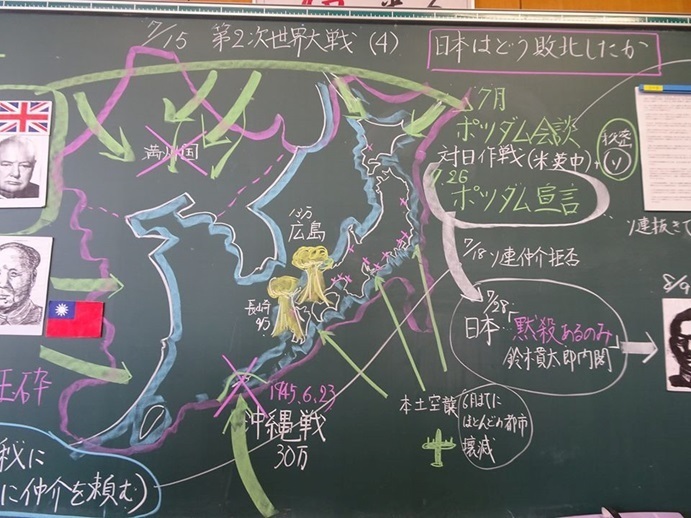 7/15 第2次世界大戦 (4)
日本はどう敗北したか
7月
ポツダム会談
対日作戦(米英中)+
ソ
7.26
ポツダム宣言
ソ連抜きで
満州国
広島
長崎
7/18 ソ連仲介拒否
7/28
日本:黙殺あるのみ
鈴木貫太郎内閣
8/9
1945.6.23
沖縄戦
30万
本土空襲
6月までに
ほとんどの都市
壊滅
玉砕
に仲介を頼む)